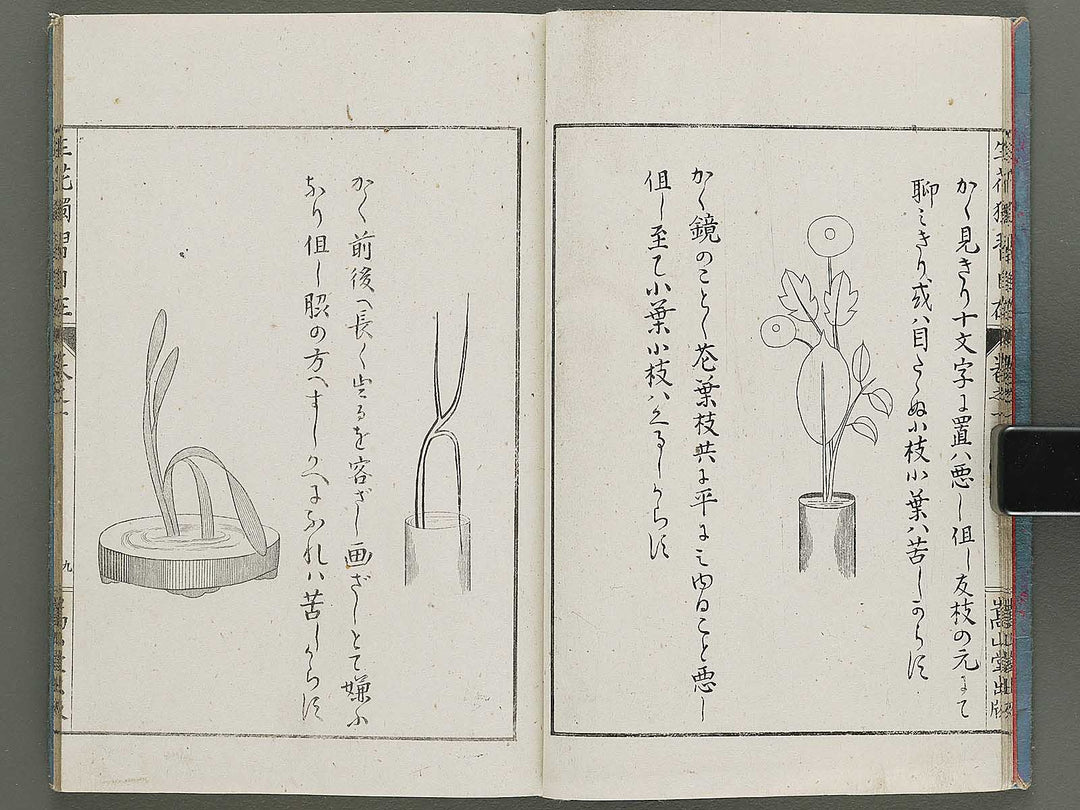 かく見きり十文字に置ハ悪し但し友枝の元にて
聊ミきり或ハ目たゝぬ小枝小葉ハ苦しからす
かく鏡のことく花葉枝共に平にミゆることと悪し
但し至て小葉小枝ハくるしからす
かく前後へ長く出るを容ざし画ざしとて嫌ふ
なり但し脇の方へすしかへにふれハ苦しからす
生花獨習自在
巻之一
九
嵩山堂出版